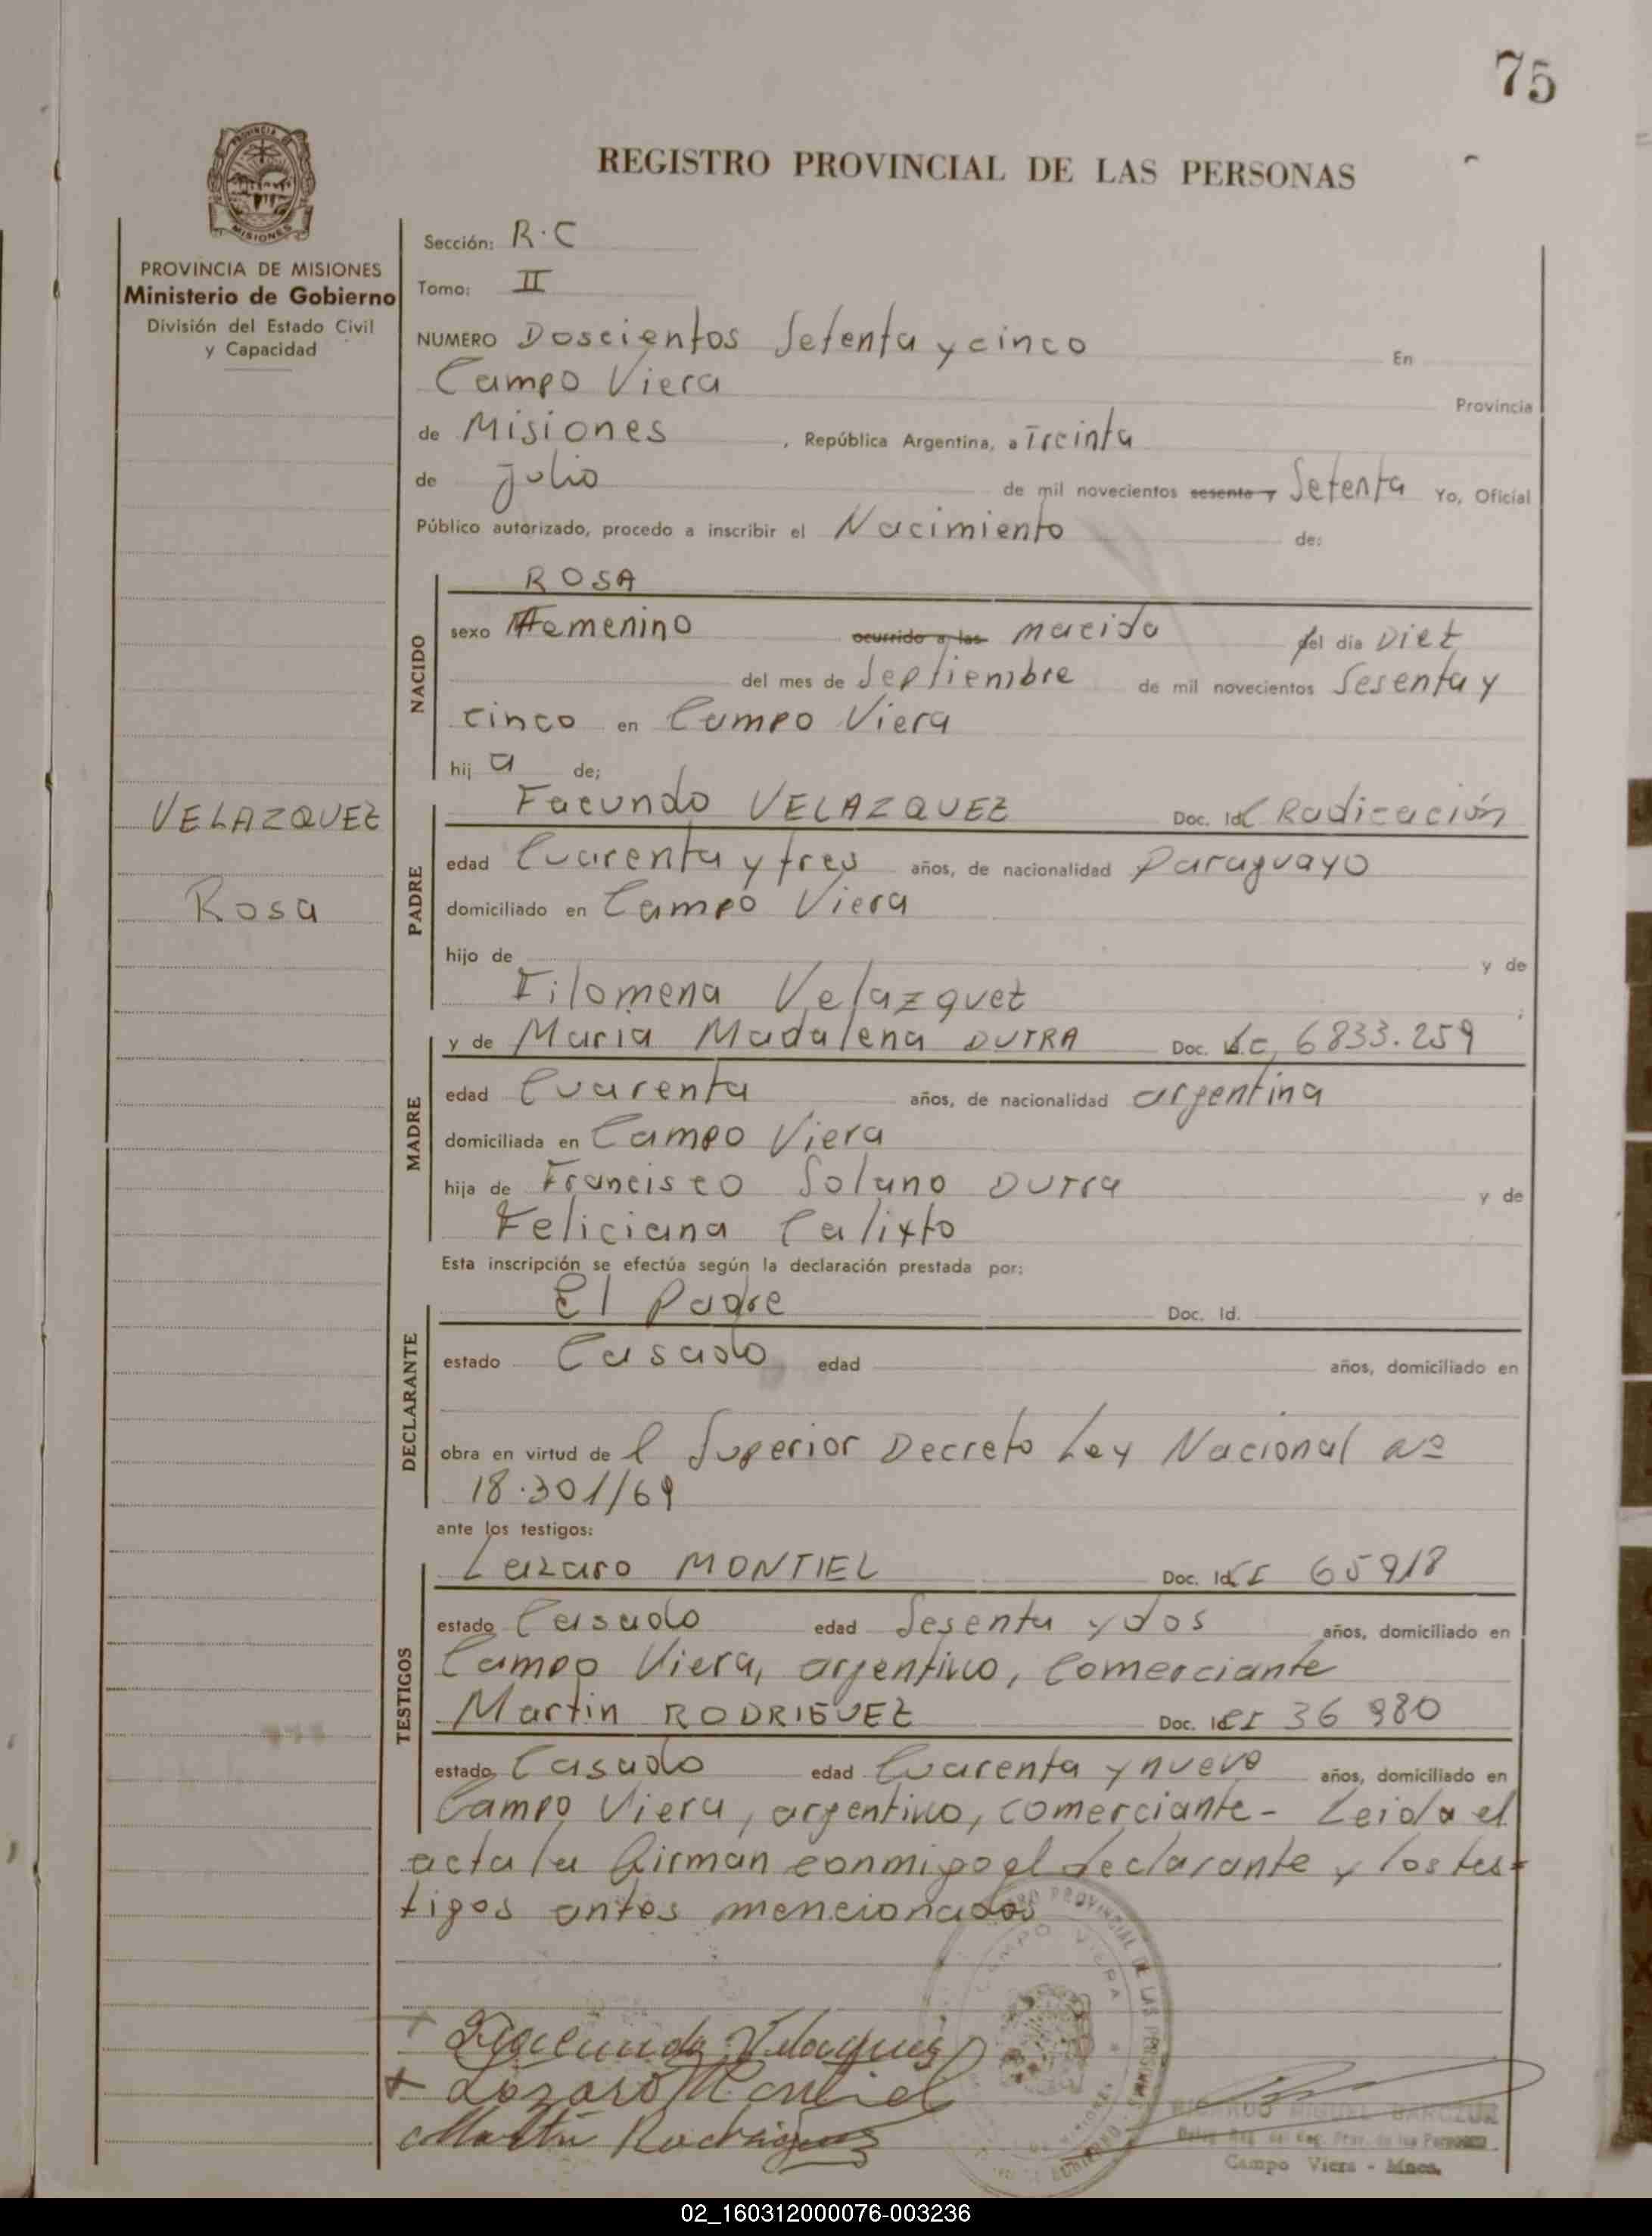 75
REGISTRO PROVINCIAL DE LAS PERSONAS
PROVINCIA DE
MISIONES
PROVINCIA DE MISIONES
Ministerio de Gobierno
División del Estado Civil
y Capacidad
Sección: R.C
Tomo: II
NUMERO Doscientos Setenta y cinco En
Campo Viera Provincia
de Misiones, República Argentina, a Treinta
de julio de mil novecientos sesenta y Setenta Yo, Oficial
Público autorizado, procedo a inscribir el Nacimiento de:
NACIDO
ROSA
sexo Femenino ocurrido a las nacida del día Diez
del mes de Septiembre de mil novecientos Sesenta y
cinco en Campo Viera
hij a de;
VELAZQUEZ
Rosa
PADRE
Facundo VELAZQUEZ Doc. Id. Radicación
edad Cuarenta y tres años, de nacionalidad Paraguayo
domiciliado en Campo Viera
hijo de y de
Filomena Velazquez ;
MADRE
y de Maria Madalena DUTRA Doc. LC, 6833.259
edad Cuarenta años, de nacionalidad argentina
domiciliada en Campo Viera
hija de Francisco Solano DUTRA y de
Feliciana Calixto
Esta inscripción se efectúa según la declaración prestada por:
DECLARANTE
El Padre Doc. Id.
estado Casado edad años, domiciliado en
obra en virtud de l Superior Decreto Ley Nacional Nº
18.301/69
ante los testigos:
TESTIGOS
Lazaro MONTIEL Doc. Id. CI 65918
estado Casado edad Sesenta y dos años, domiciliado en
Campo Viera, argentino, Comerciante
Martin RODRIGUEZ Doc. Id. CI 36 980
estado Casado edad Cuarenta y nueve años, domiciliado en
Campo Viera, argentino, comerciante- Leida el
acta la firman conmigo el declarante y los tes-
tigos antes mencionados
REGISTRO PROVINCIAL DE LAS PERSONAS
CAMPO VIERA
+ Facundo Velazquez
+ Lazaro Montiel
Martin Rodriguez
RICARDO MIGUEL
Campo Viera - Mnes.
02_160312000076-003236